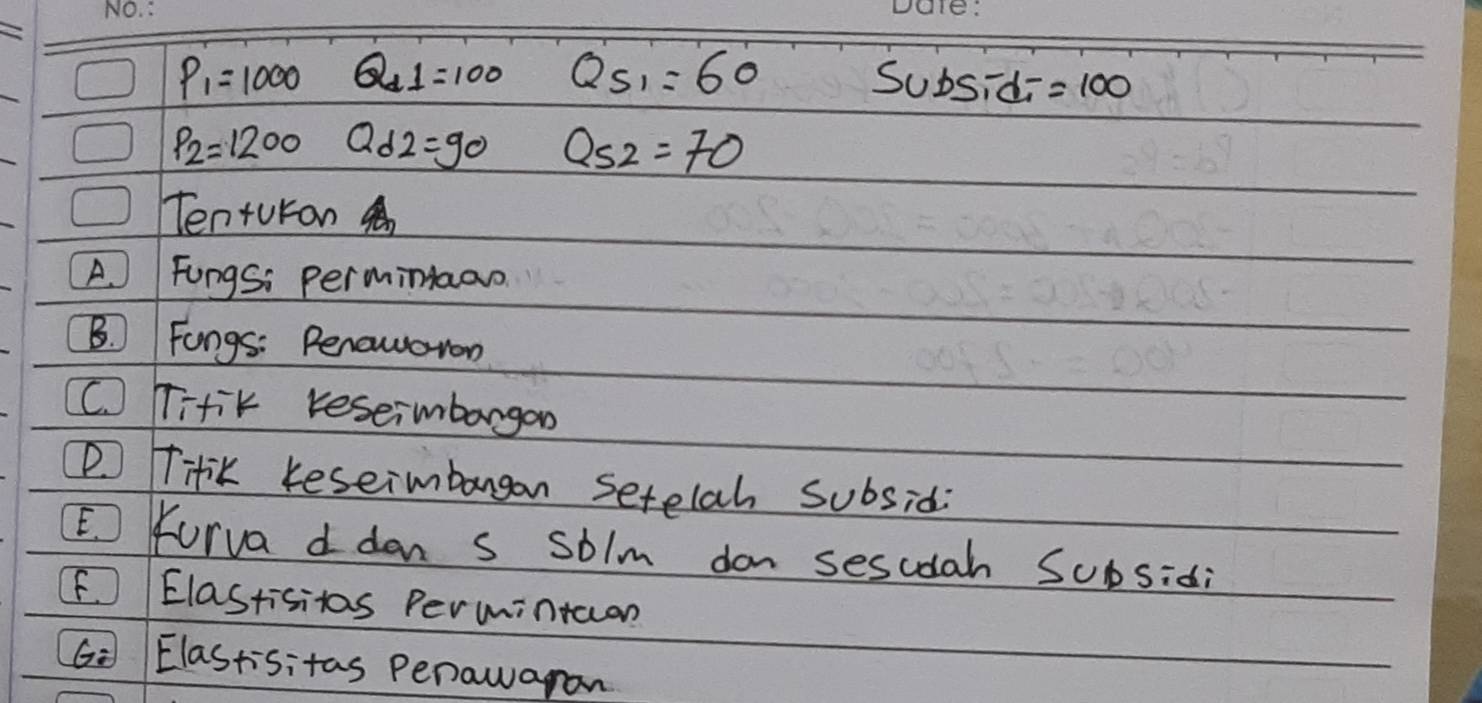 No.: Date:
P1=1000 Qd1=100 Qs1=60 Subsidi=100
P2=1200 Qd2=90 Qs2=70
Tentukan
A. Fungsi permintaan
B. Fungsi Penawaran
C. Titik keseimbangan
D. Titik keseimbangan setelah subsidi
E. Kurva d dan s sblm dan sesudah subsidi
F. Elastisitas Permintaan
G. Elastisitas Penawaran